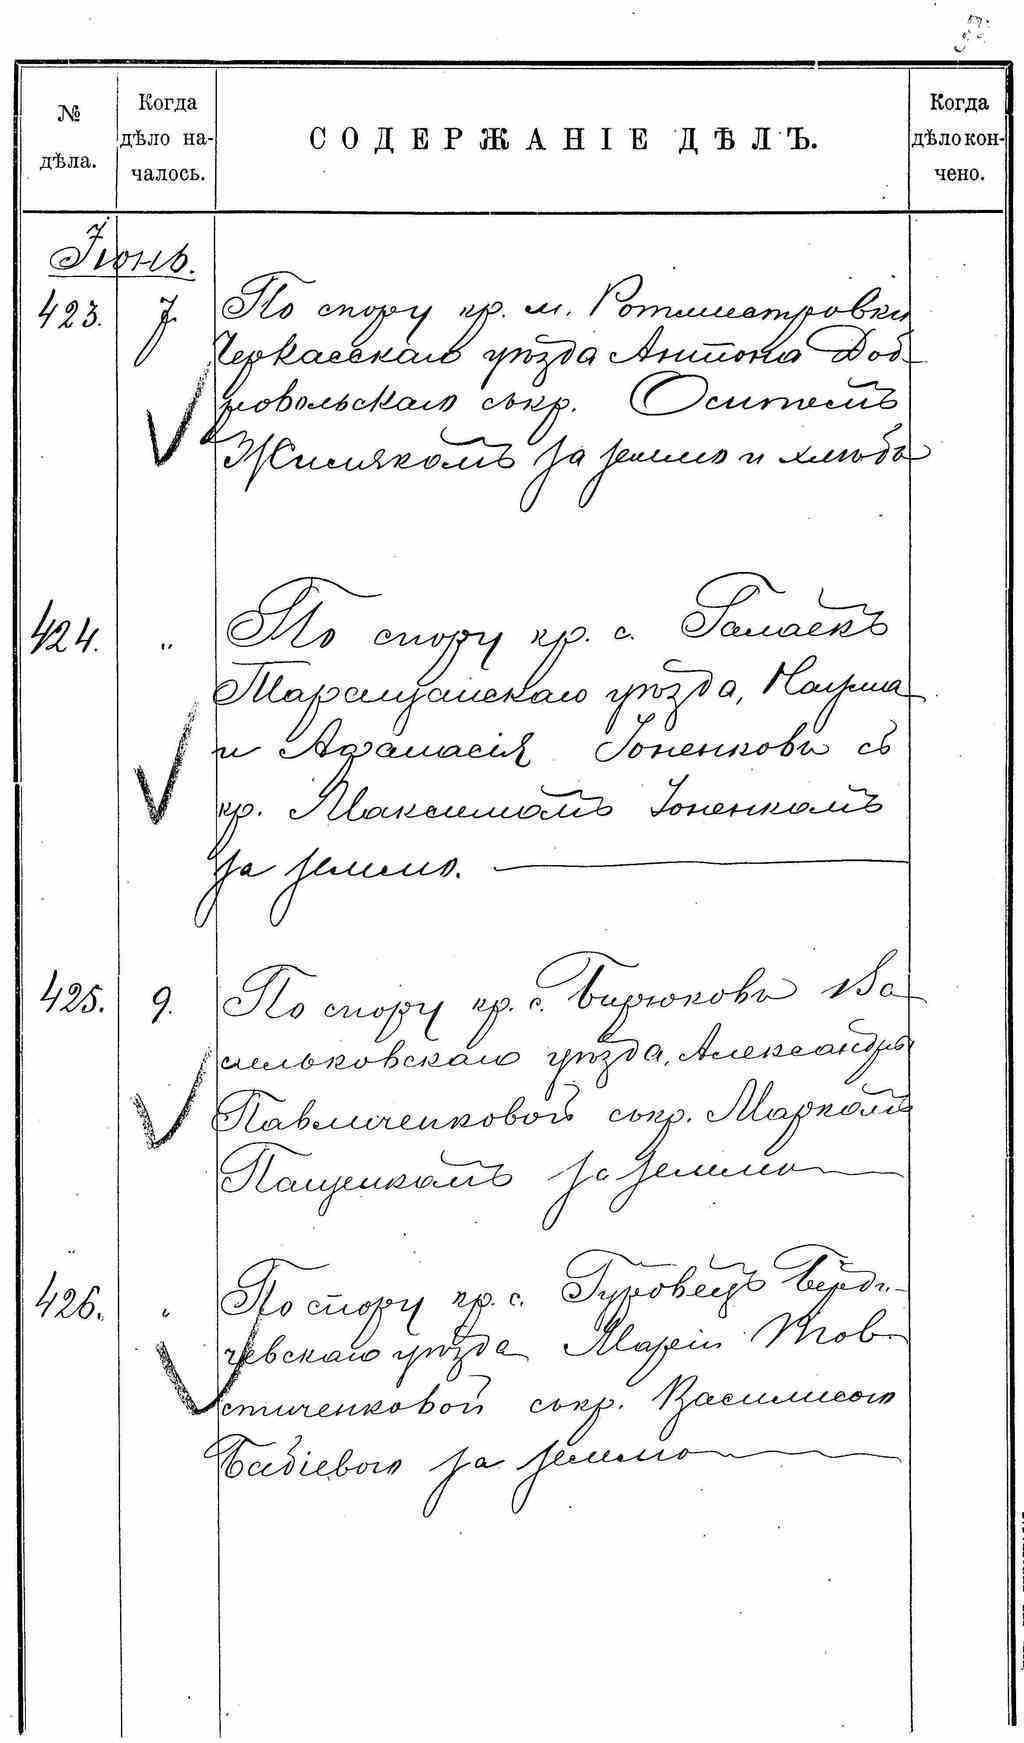 № дѣла.
Когда дѣло на-
чалось.
СОДЕРЖАНІЕ ДѢЛЪ.
Когда дѣло кон-
чено.
Іюнь.
423. 7. По спору кр. м. Ротмистровки
Черкасскаго уѣзда Антона Доб-
ровольскаго съ кр. Осипомъ
Жиляком ъ за землю и хлѣба
424. " По спору кр. с. Галаекъ
Таращанскаго уѣзда, Наума
и Афанасія Іоненковы съ
кр. Максимомъ Іоненкомъ
за землю.
425. 9. По спору кр. с. Бирюковъ Ва-
сильковскаго уѣзда, Александры
Павличенковой съ кр. Маркомъ
Пащенкомъ за землю
426. " По спору кр. с. Гуровецъ Берди-
чевскаго уѣзда Маріи Товс-
тиченковой съ кр. Василисою
Бабіевою за землю